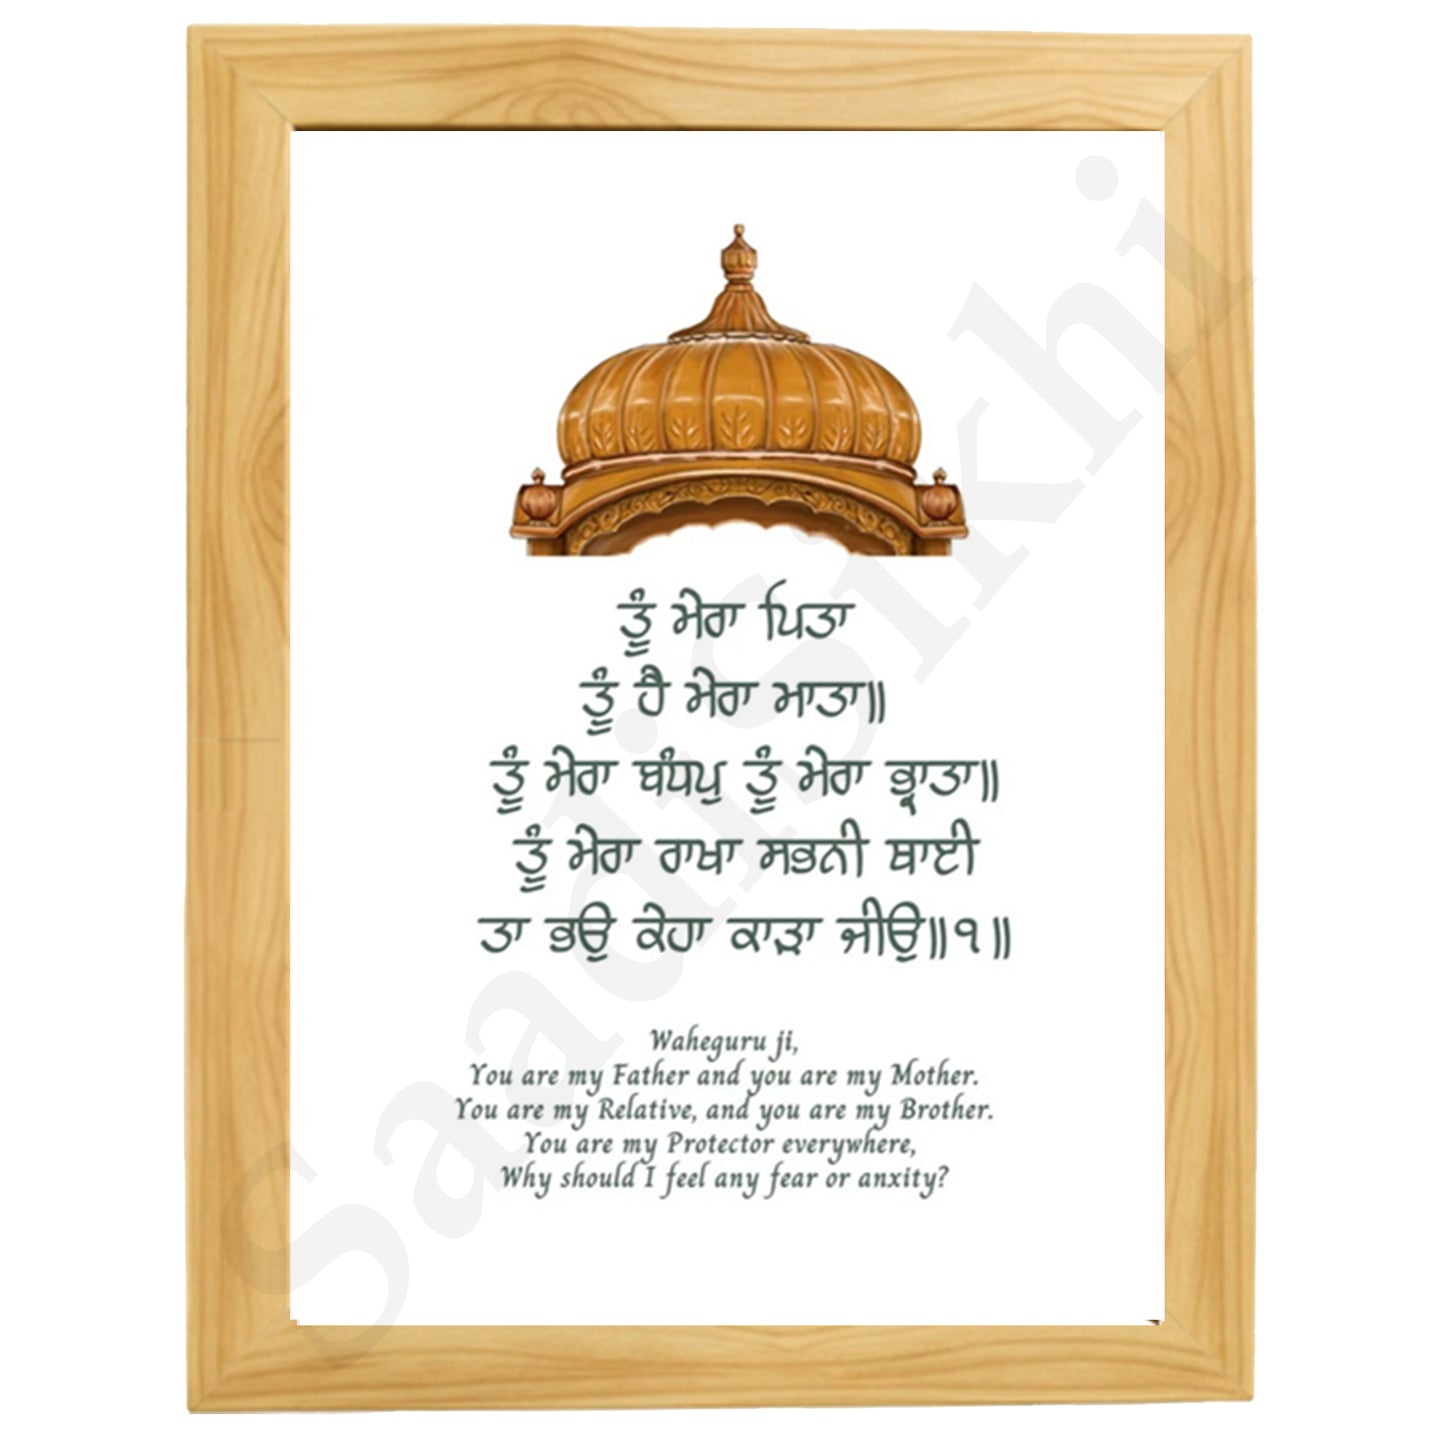 ਤੂੰ ਮੇਰਾ ਪਿਤਾ
ਤੂੰ ਹੈ ਮੇਰਾ ਮਾਤਾ॥
ਤੂੰ ਮੇਰਾ ਬੰਧਪੁ ਤੂੰ ਮੇਰਾ ਭ੍ਰਾਤਾ॥
ਤੂੰ ਮੇਰਾ ਰਾਖਾ ਸਭਨੀ ਥਾਈ
ਤਾ ਭਉ ਕੇਹਾ ਕਾੜਾ ਜੀਉ॥੧॥
Waheguru ji,
You are my Father and you are my Mother.
You are my Relative, and you are my Brother.
You are my Protector everywhere,
Why should I feel any fear or anxity?
SaadiSikhi